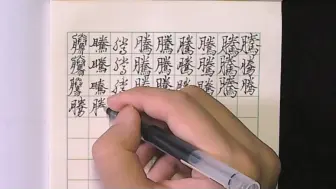 騰騰騰騰騰騰騰騰騰
騰騰騰騰騰騰騰騰騰
騰騰騰騰騰騰騰騰騰
騰